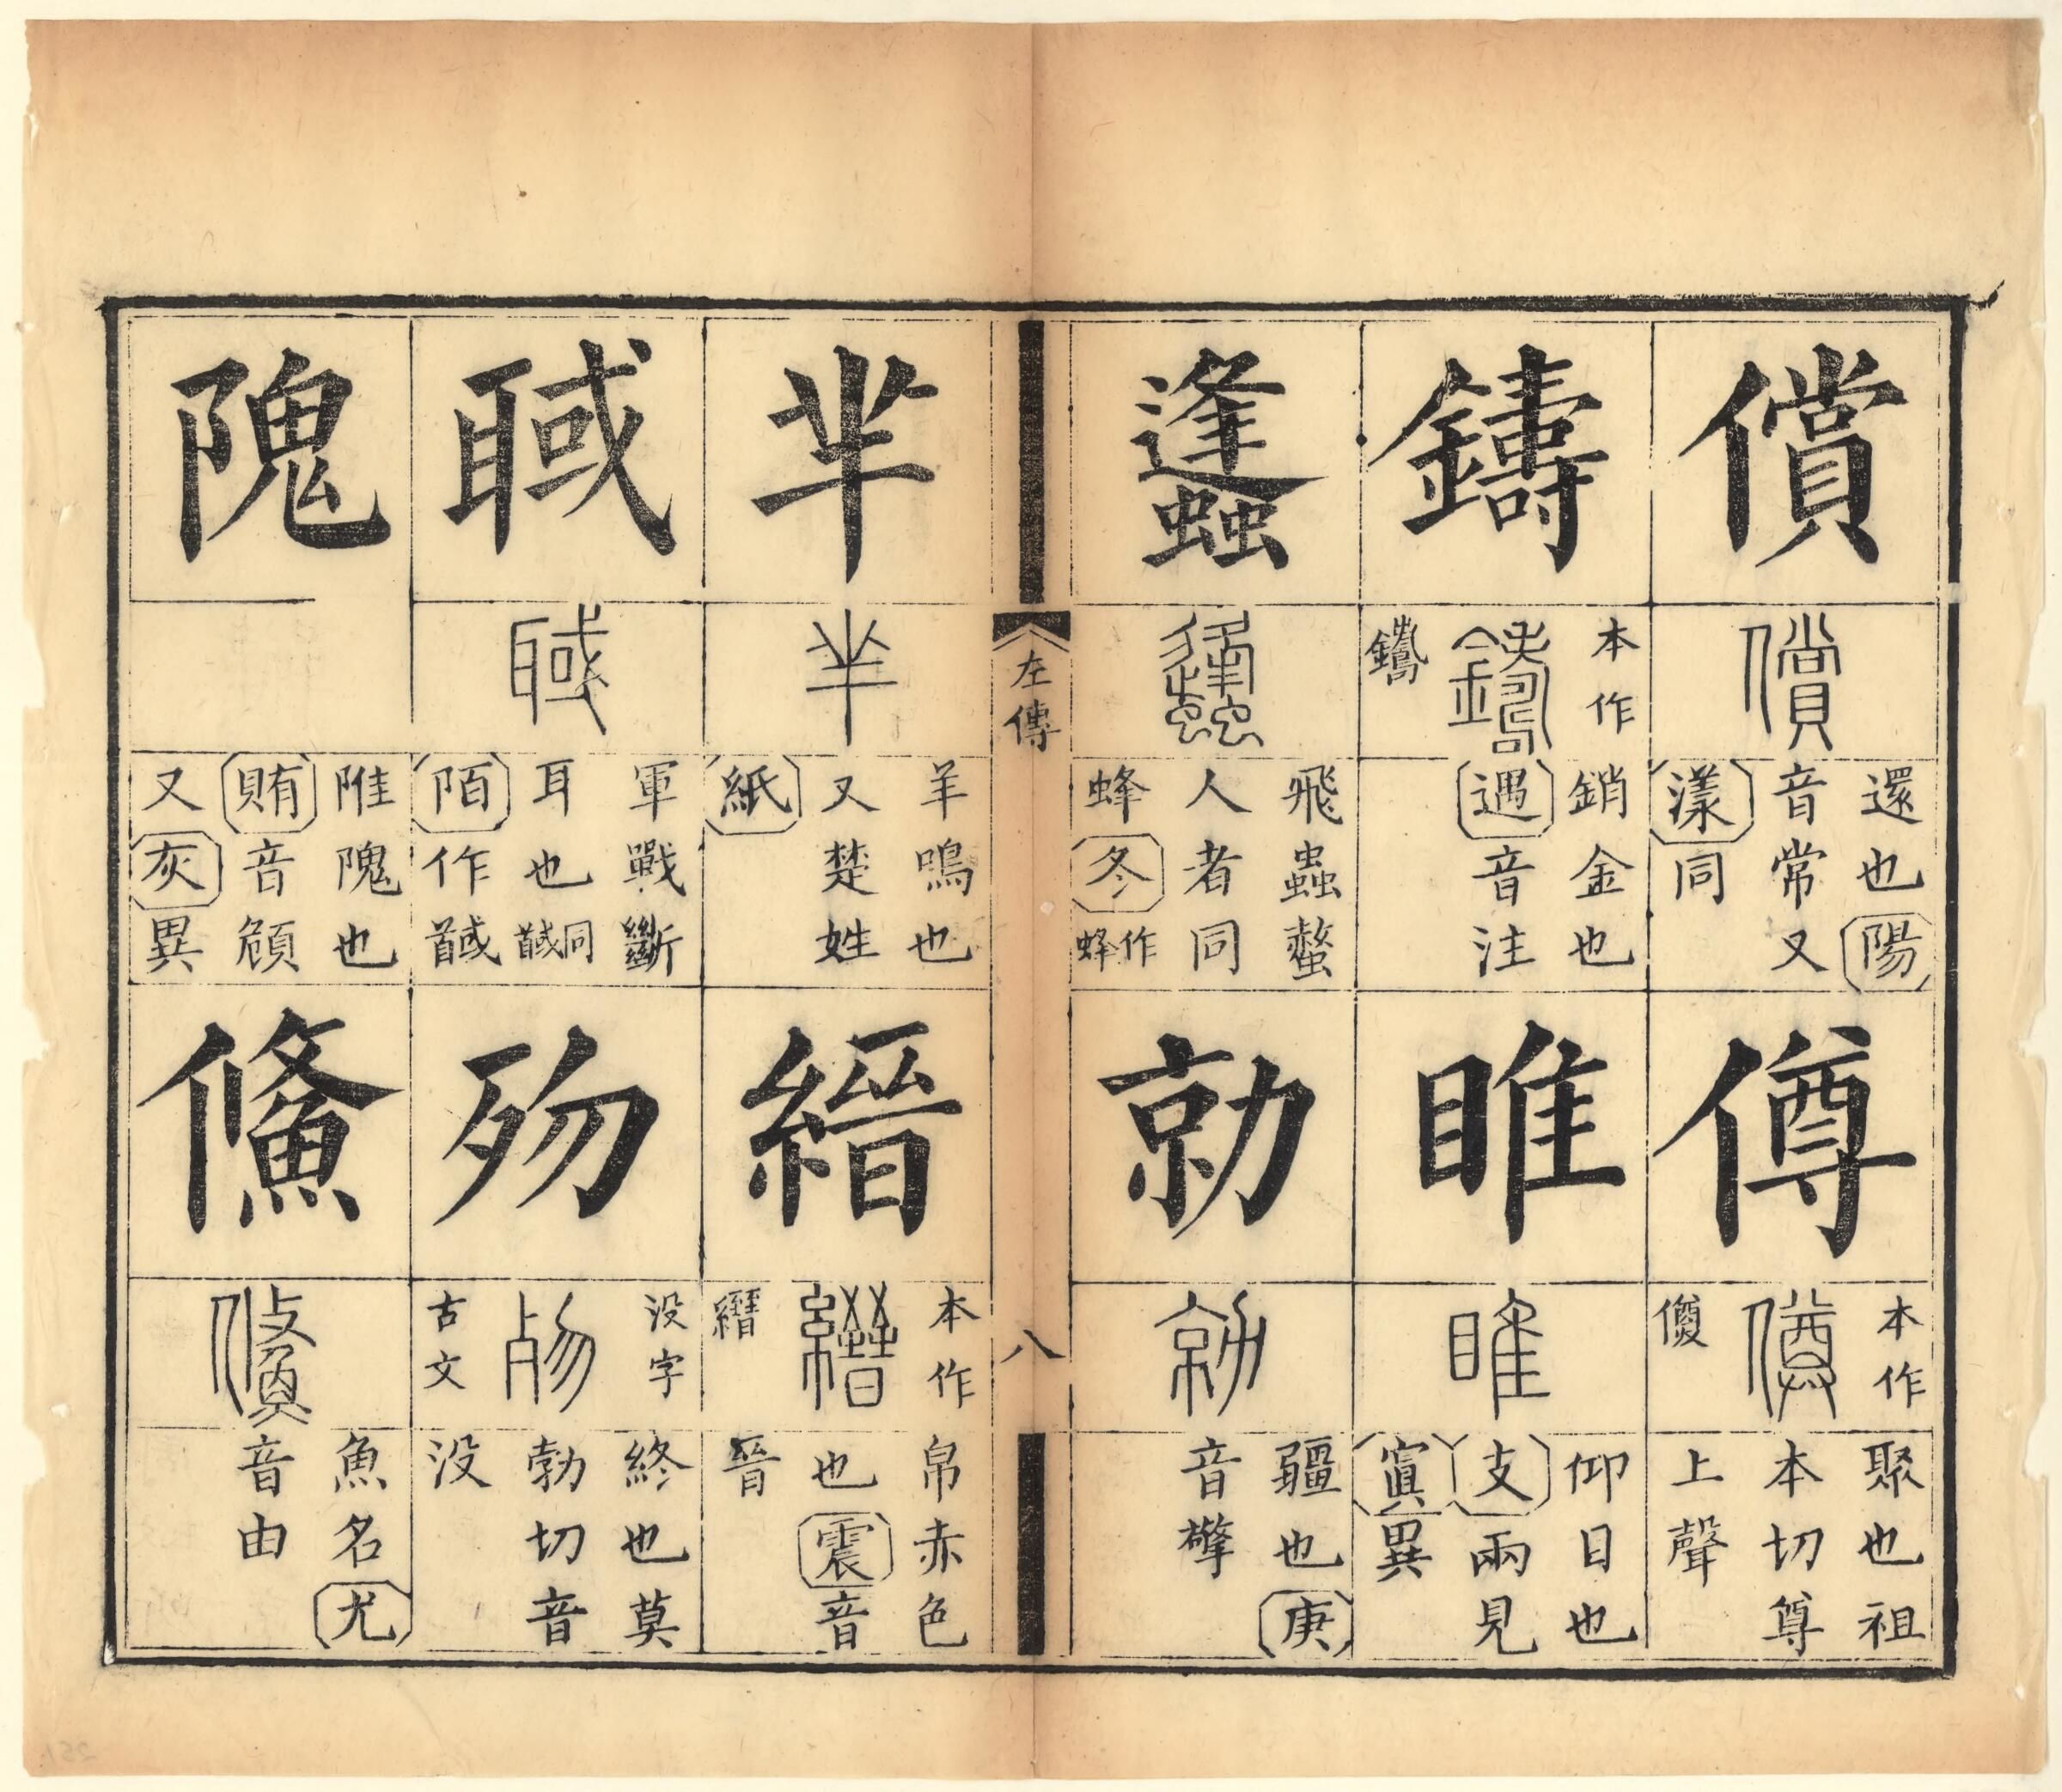 償
還也陽
音常又
漾同
僔
本作
僾
聚也祖
本切尊
上聲
鑄
本作
鑄
銷金也
遇音注
睢
仰目也
支兩見
寘異
蠭
飛蟲螫
人者同
蜂冬蜂作
勍
彊也庚
音擎
左傳
八
羋
羊鳴也
又楚姓
紙
縉
本作
縉
帛赤色
也震音
晉
聝
軍戰斷
耳也馘同
陌作馘
歾
没字
古文
終也莫
勃切音
没
隗
陮隗也
賄音頠
又灰異
鯈
魚名尤
音由